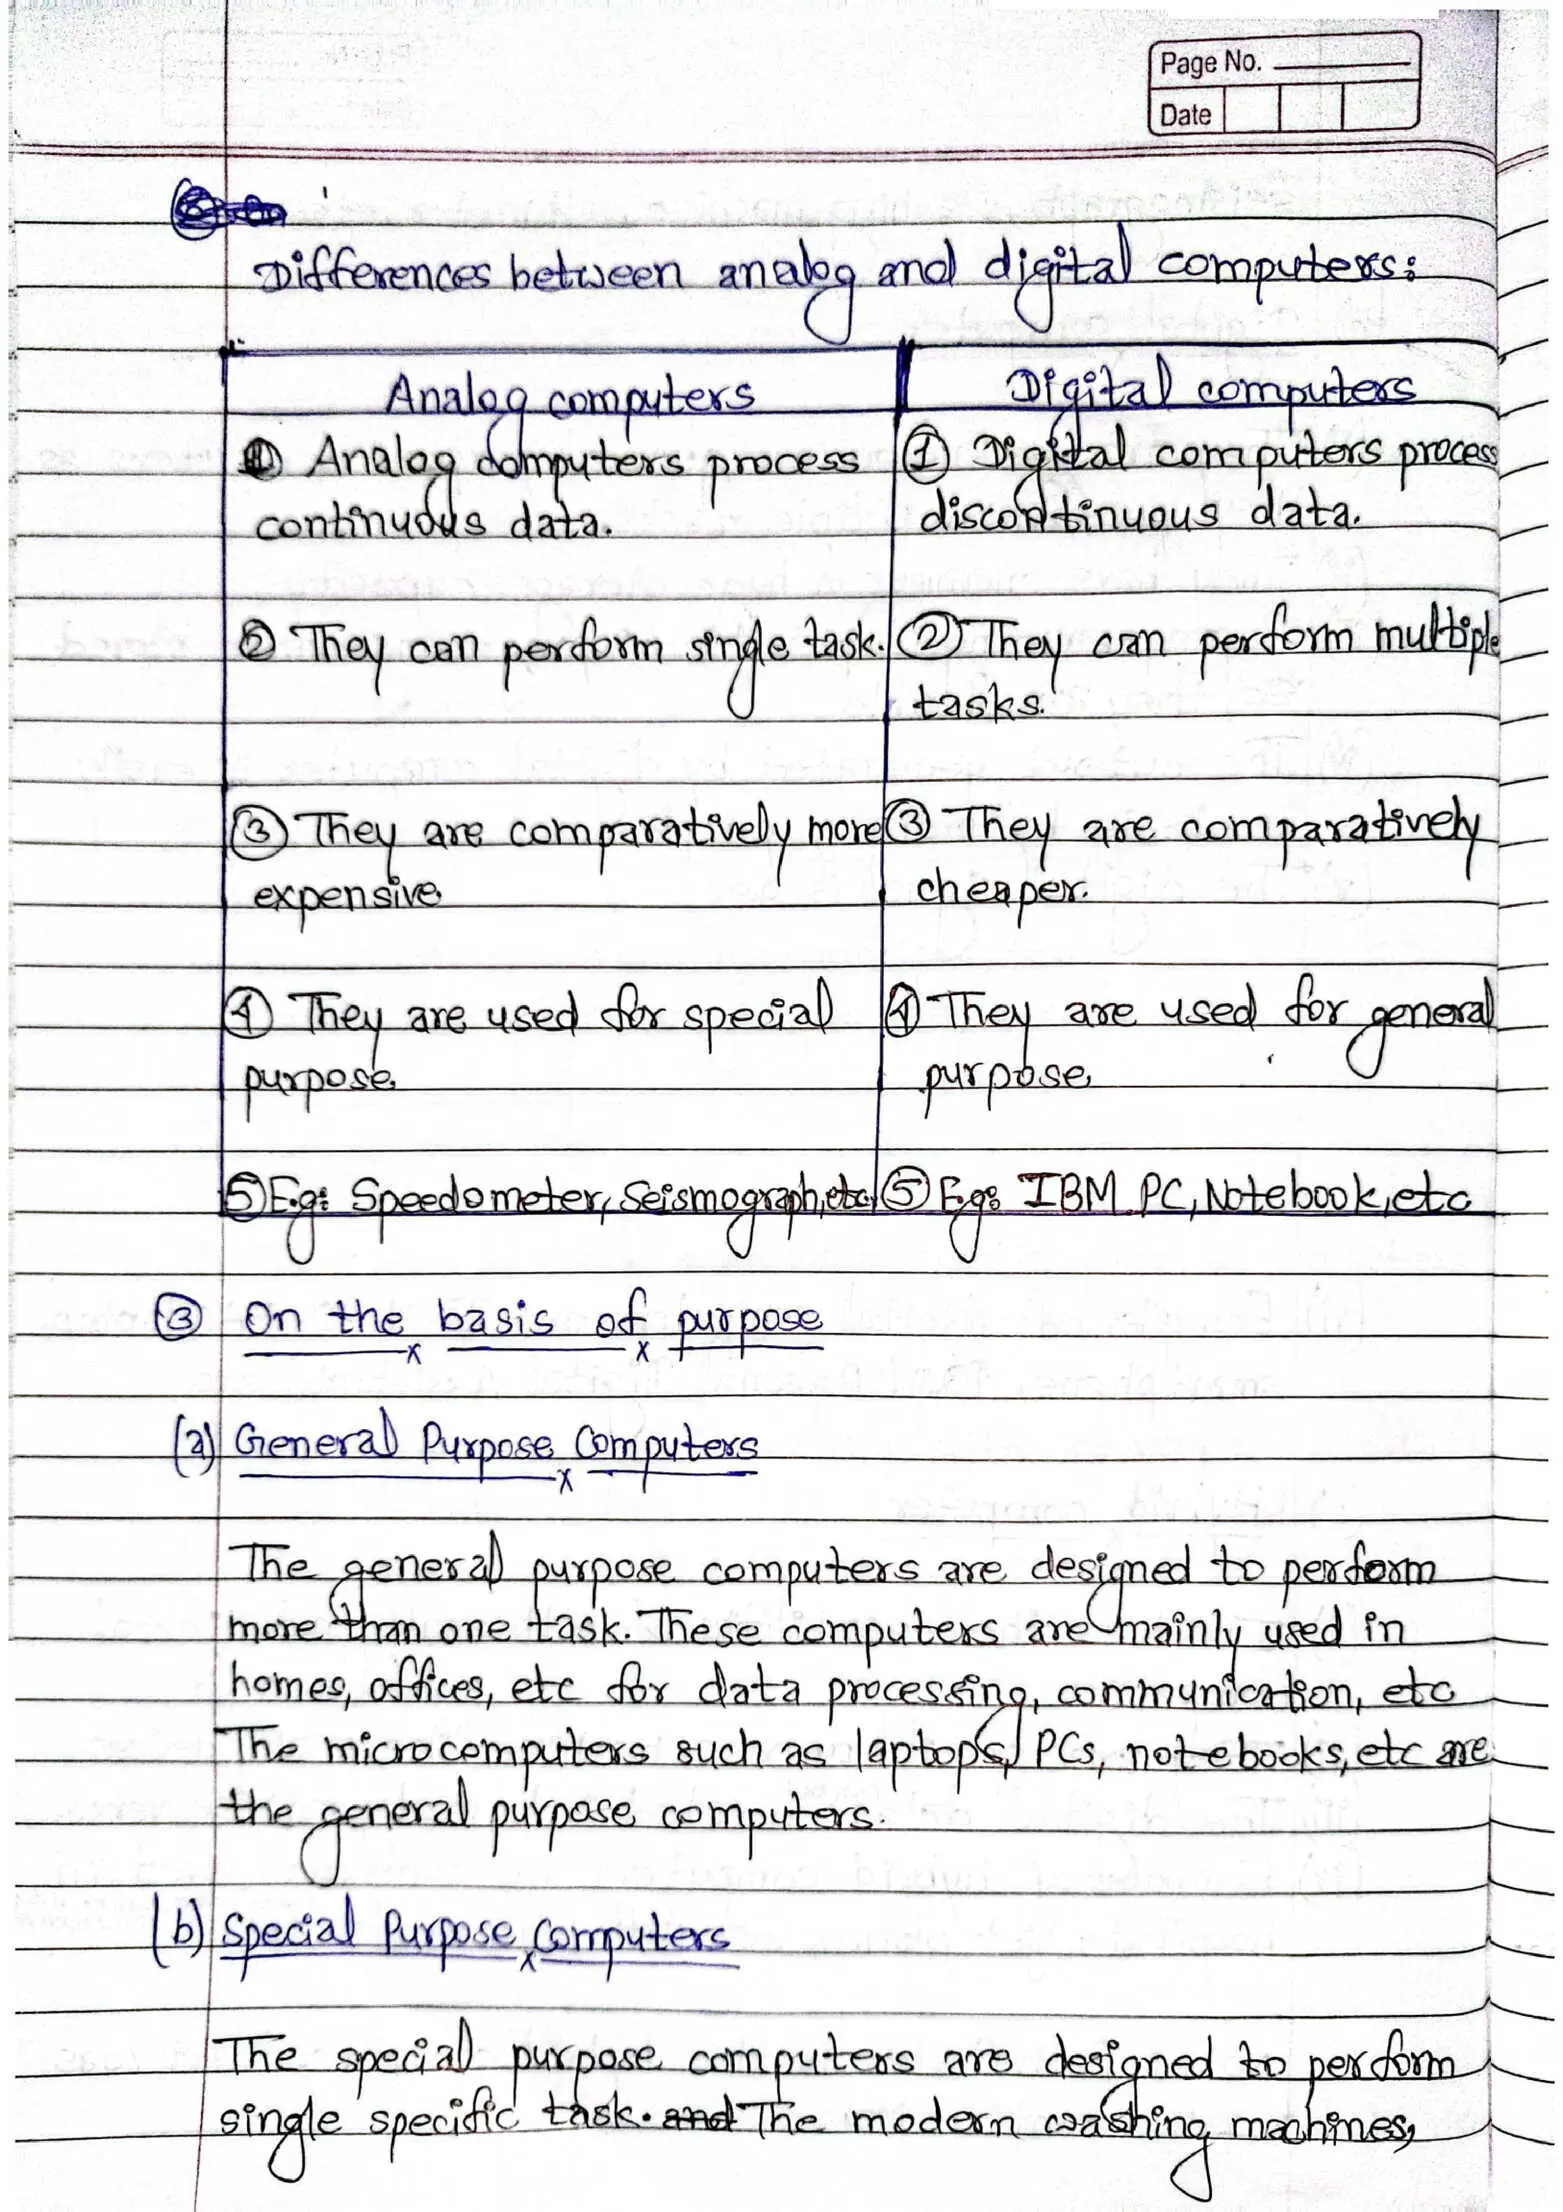 Page No.
Date
Differences between analog and digital computers:
Analog computers
Digital computers
① Analog computers process
continuous data.
① Digital computers process
discontinuous data.
② They can perform single task.
② They can perform multiple
tasks.
③ They are comparatively more
expensive
③ They are comparatively
cheaper.
④ They are used for special
purpose.
④ They are used for general
purpose.
⑤ E.g: Speedometer, Seismograph, etc
⑤ E.g: IBM PC, Notebook, etc
③ On the basis of purpose
(a) General Purpose Computers
The general purpose computers are designed to perform
more than one task. These computers are mainly used in
homes, offices, etc for data processing, communication, etc
The microcomputers such as laptops, PCs, notebooks, etc are
the general purpose computers.
(b) Special Purpose Computers
The special purpose computers are designed to perform
single specific task. and The modern washing machines,